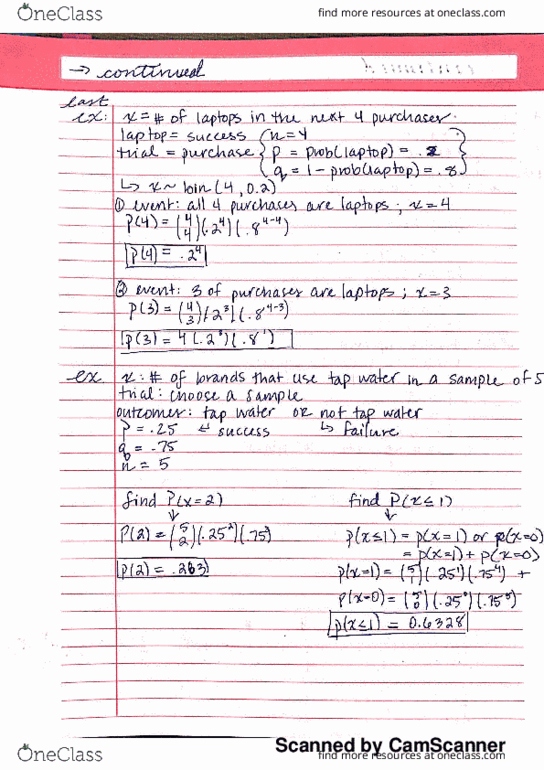 OneClass
find more resources at oneclass.com
→ continued
last
ex: x = # of laptops in the next 4 purchases.
laptop = success n = 4
trial = purchase p = prob(laptop) = .2
q = 1 - prob(laptop) = .8
↳ x ~ bin (4, 0.2)
① event: all 4 purchases are laptops ; x = 4
P(4) = (4 4)(.2⁴)(.8⁴⁻⁴)
P(4) = .2⁴
② event: 3 of purchases are laptops ; x = 3
P(3) = (4 3)(.2³)(.8⁴⁻³)
P(3) = 4(.2³)(.8¹)
ex x: # of brands that use tap water in a sample of 5
trial: choose a sample
outcomes: tap water or not tap water
p = .25 ← success ↳ failure
q = .75
n = 5
find P(x=2)
↓
P(2) = (5 2)(.25²)(.75³)
P(2) = .263
find P(x≤1)
↓
P(x≤1) = P(x=1) or P(x=0)
= P(x=1) + P(x=0)
P(x=1) = (5 1)(.25¹)(.75⁴) +
P(x=0) = (5 0)(.25⁰)(.75⁵)
P(x≤1) = 0.6328
Scanned by CamScanner
OneClass
find more resources at oneclass.com